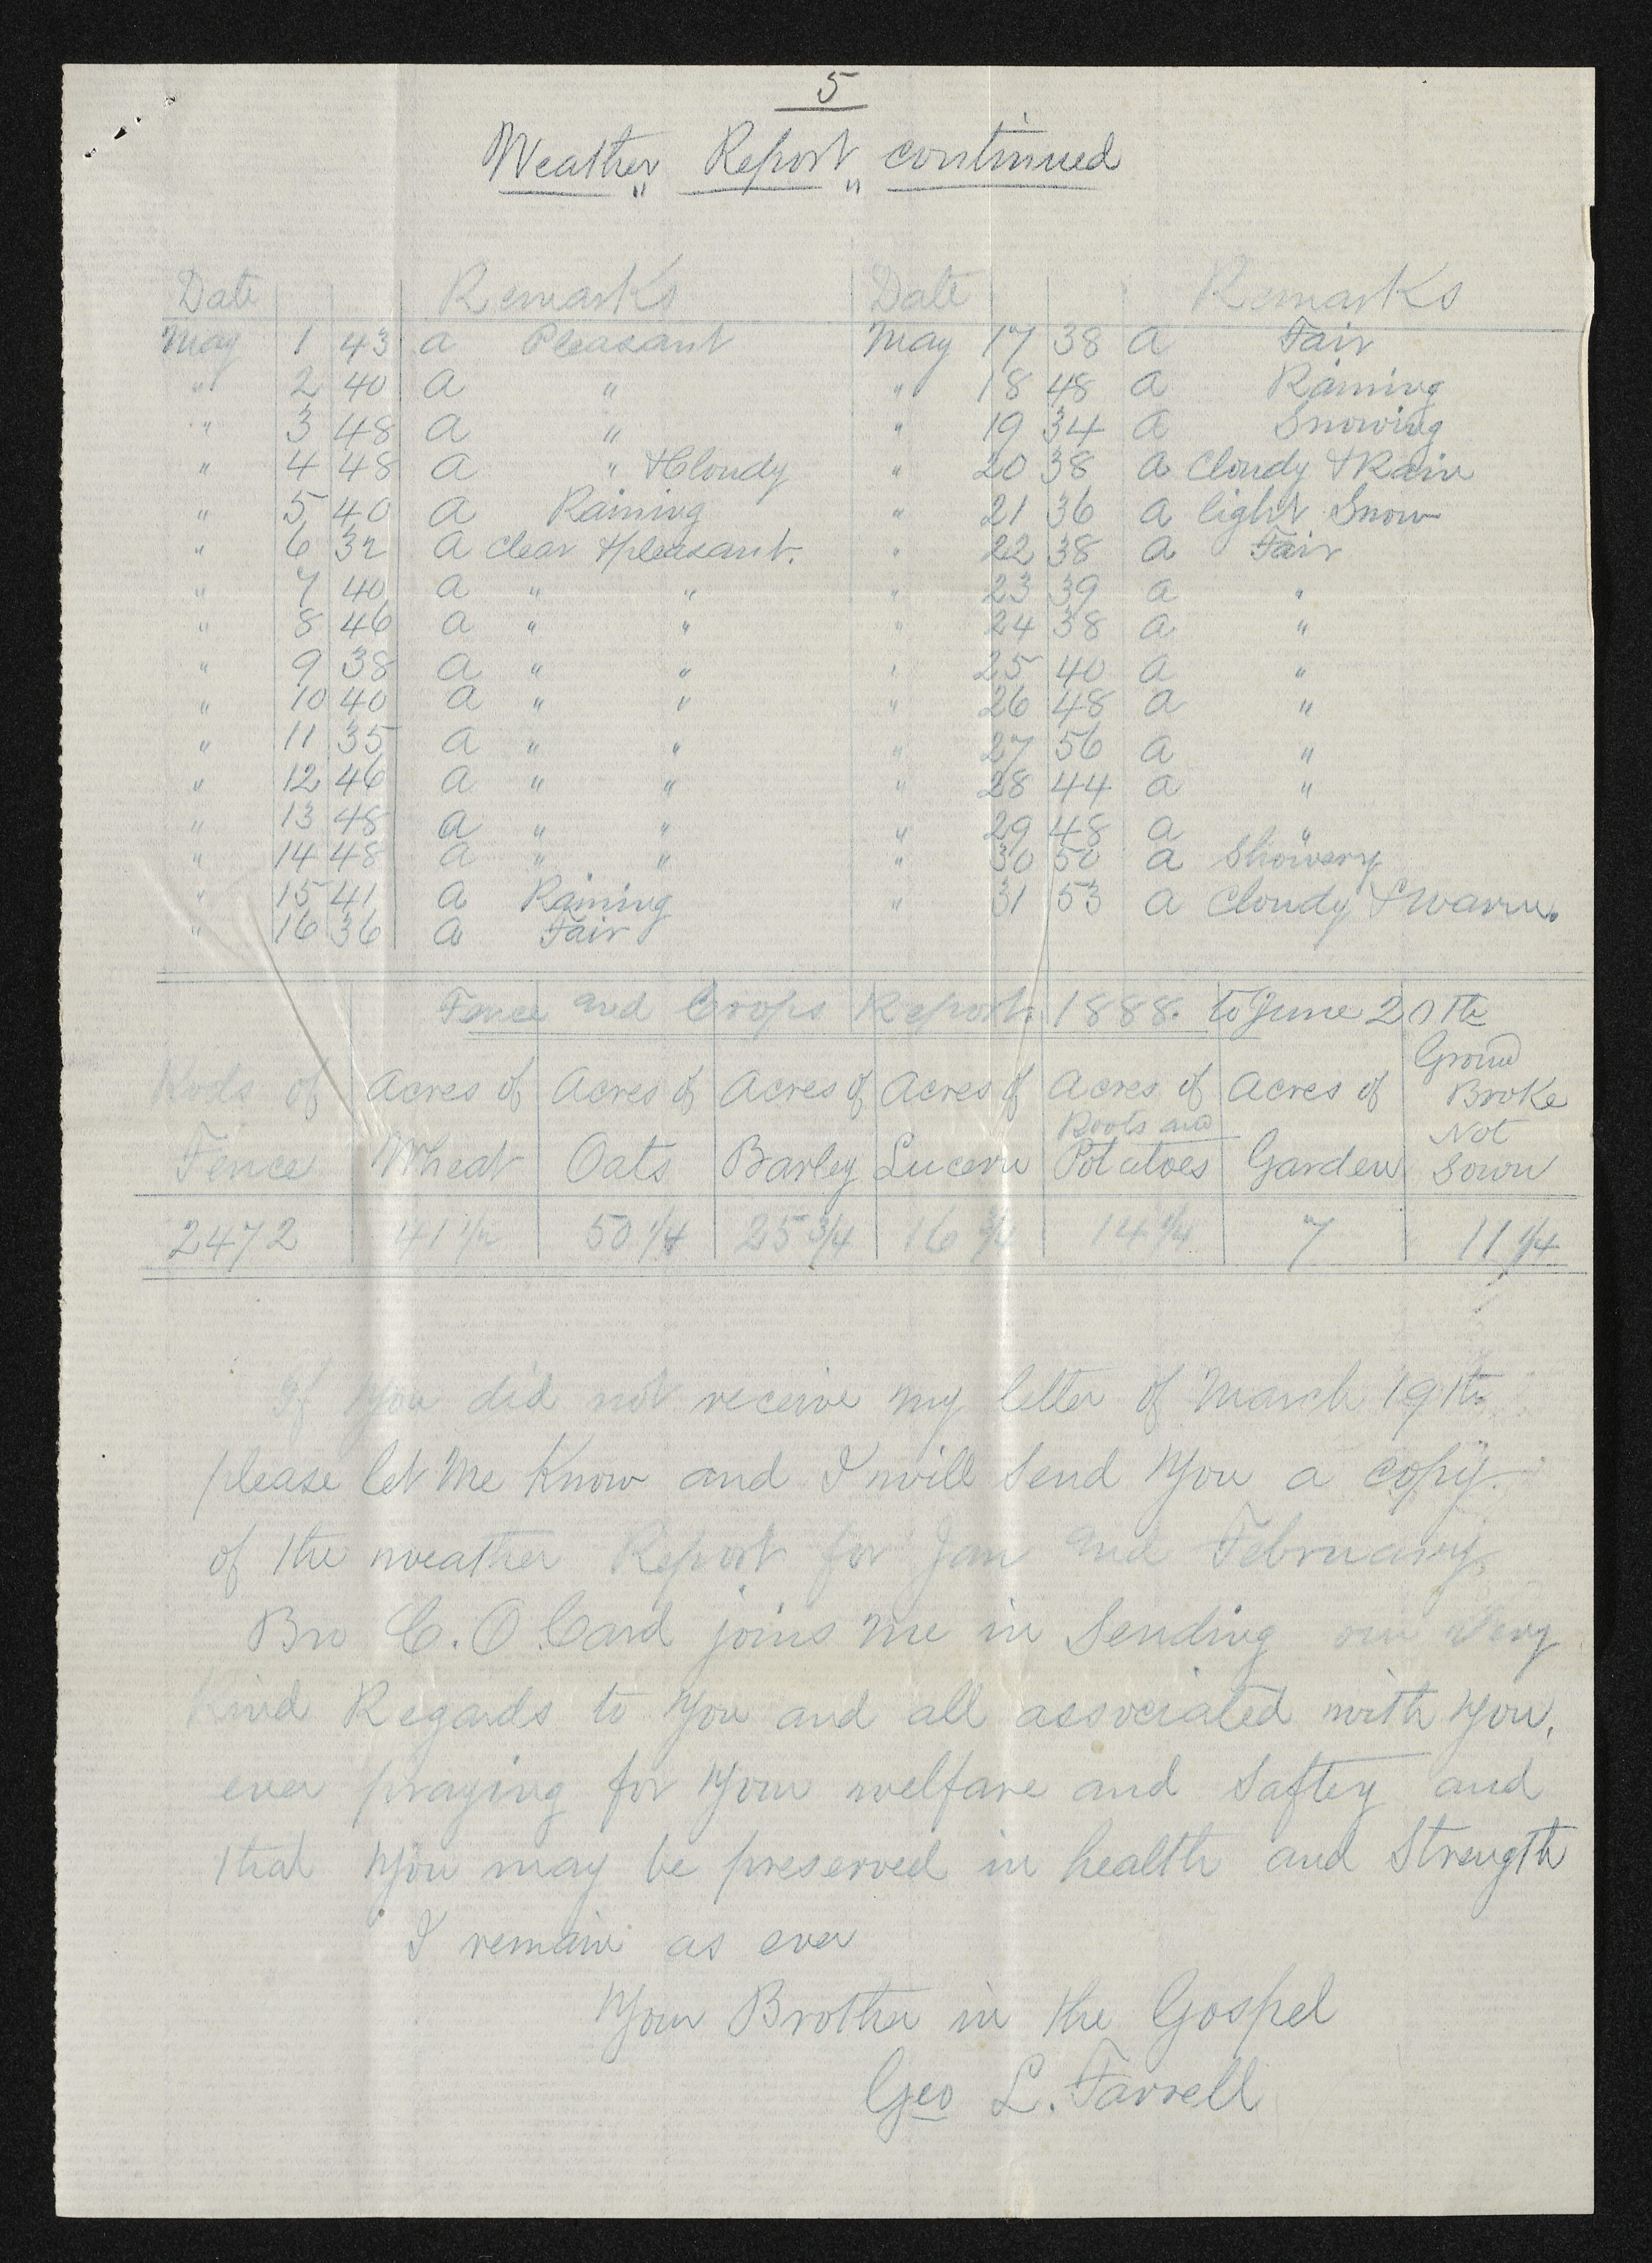 5
Weather " Report " continued
Date Remarks Date Remarks
May 1 43 a Pleasant May 17 38 a Fair
" 2 40 a " " 18 48 a Raining
" 3 48 a " " 19 34 a Snowing
" 4 48 a " & Cloudy " 20 38 a Cloudy & Rain
" 5 40 a Raining " 21 36 a light Snow
" 6 32 a clear & pleasant. " 22 38 a Fair
" 7 40 a " " " 23 39 a "
" 8 46 a " " " 24 38 a "
" 9 38 a " " " 25 40 a "
" 10 40 a " " " 26 48 a "
" 11 35 a " " " 27 56 a "
" 12 46 a " " " 28 44 a "
" 13 48 a " " " 29 48 a "
" 14 48 a " " " 30 50 a Showery
" 15 41 a Raining " 31 53 a Cloudy & Warm.
" 16 36 a Fair
Fence and Crops Report. 1888. to June 20th
Rods of Fence
Acres of Wheat
Acres of Oats
Acres of Barley
Acres of Lucern
Acres of Roots and Potatoes
Acres of Garden
Ground Broke Not Sown
2472 41 1/2 50 1/4 25 3/4 16 14 1/4 7 11 1/4
If you did not receive my letter of March 19th
please let me Know and I will Send you a copy
of the weather Report for Jan and February.
Bro C. O Card joins me in Sending our very
Kind Regards to you and all associated with you,
ever praying for your welfare and Saftey and
that you may be preserved in health and Strength
I remain as ever
Your Brother in the Gospel
Geo L. Farrell